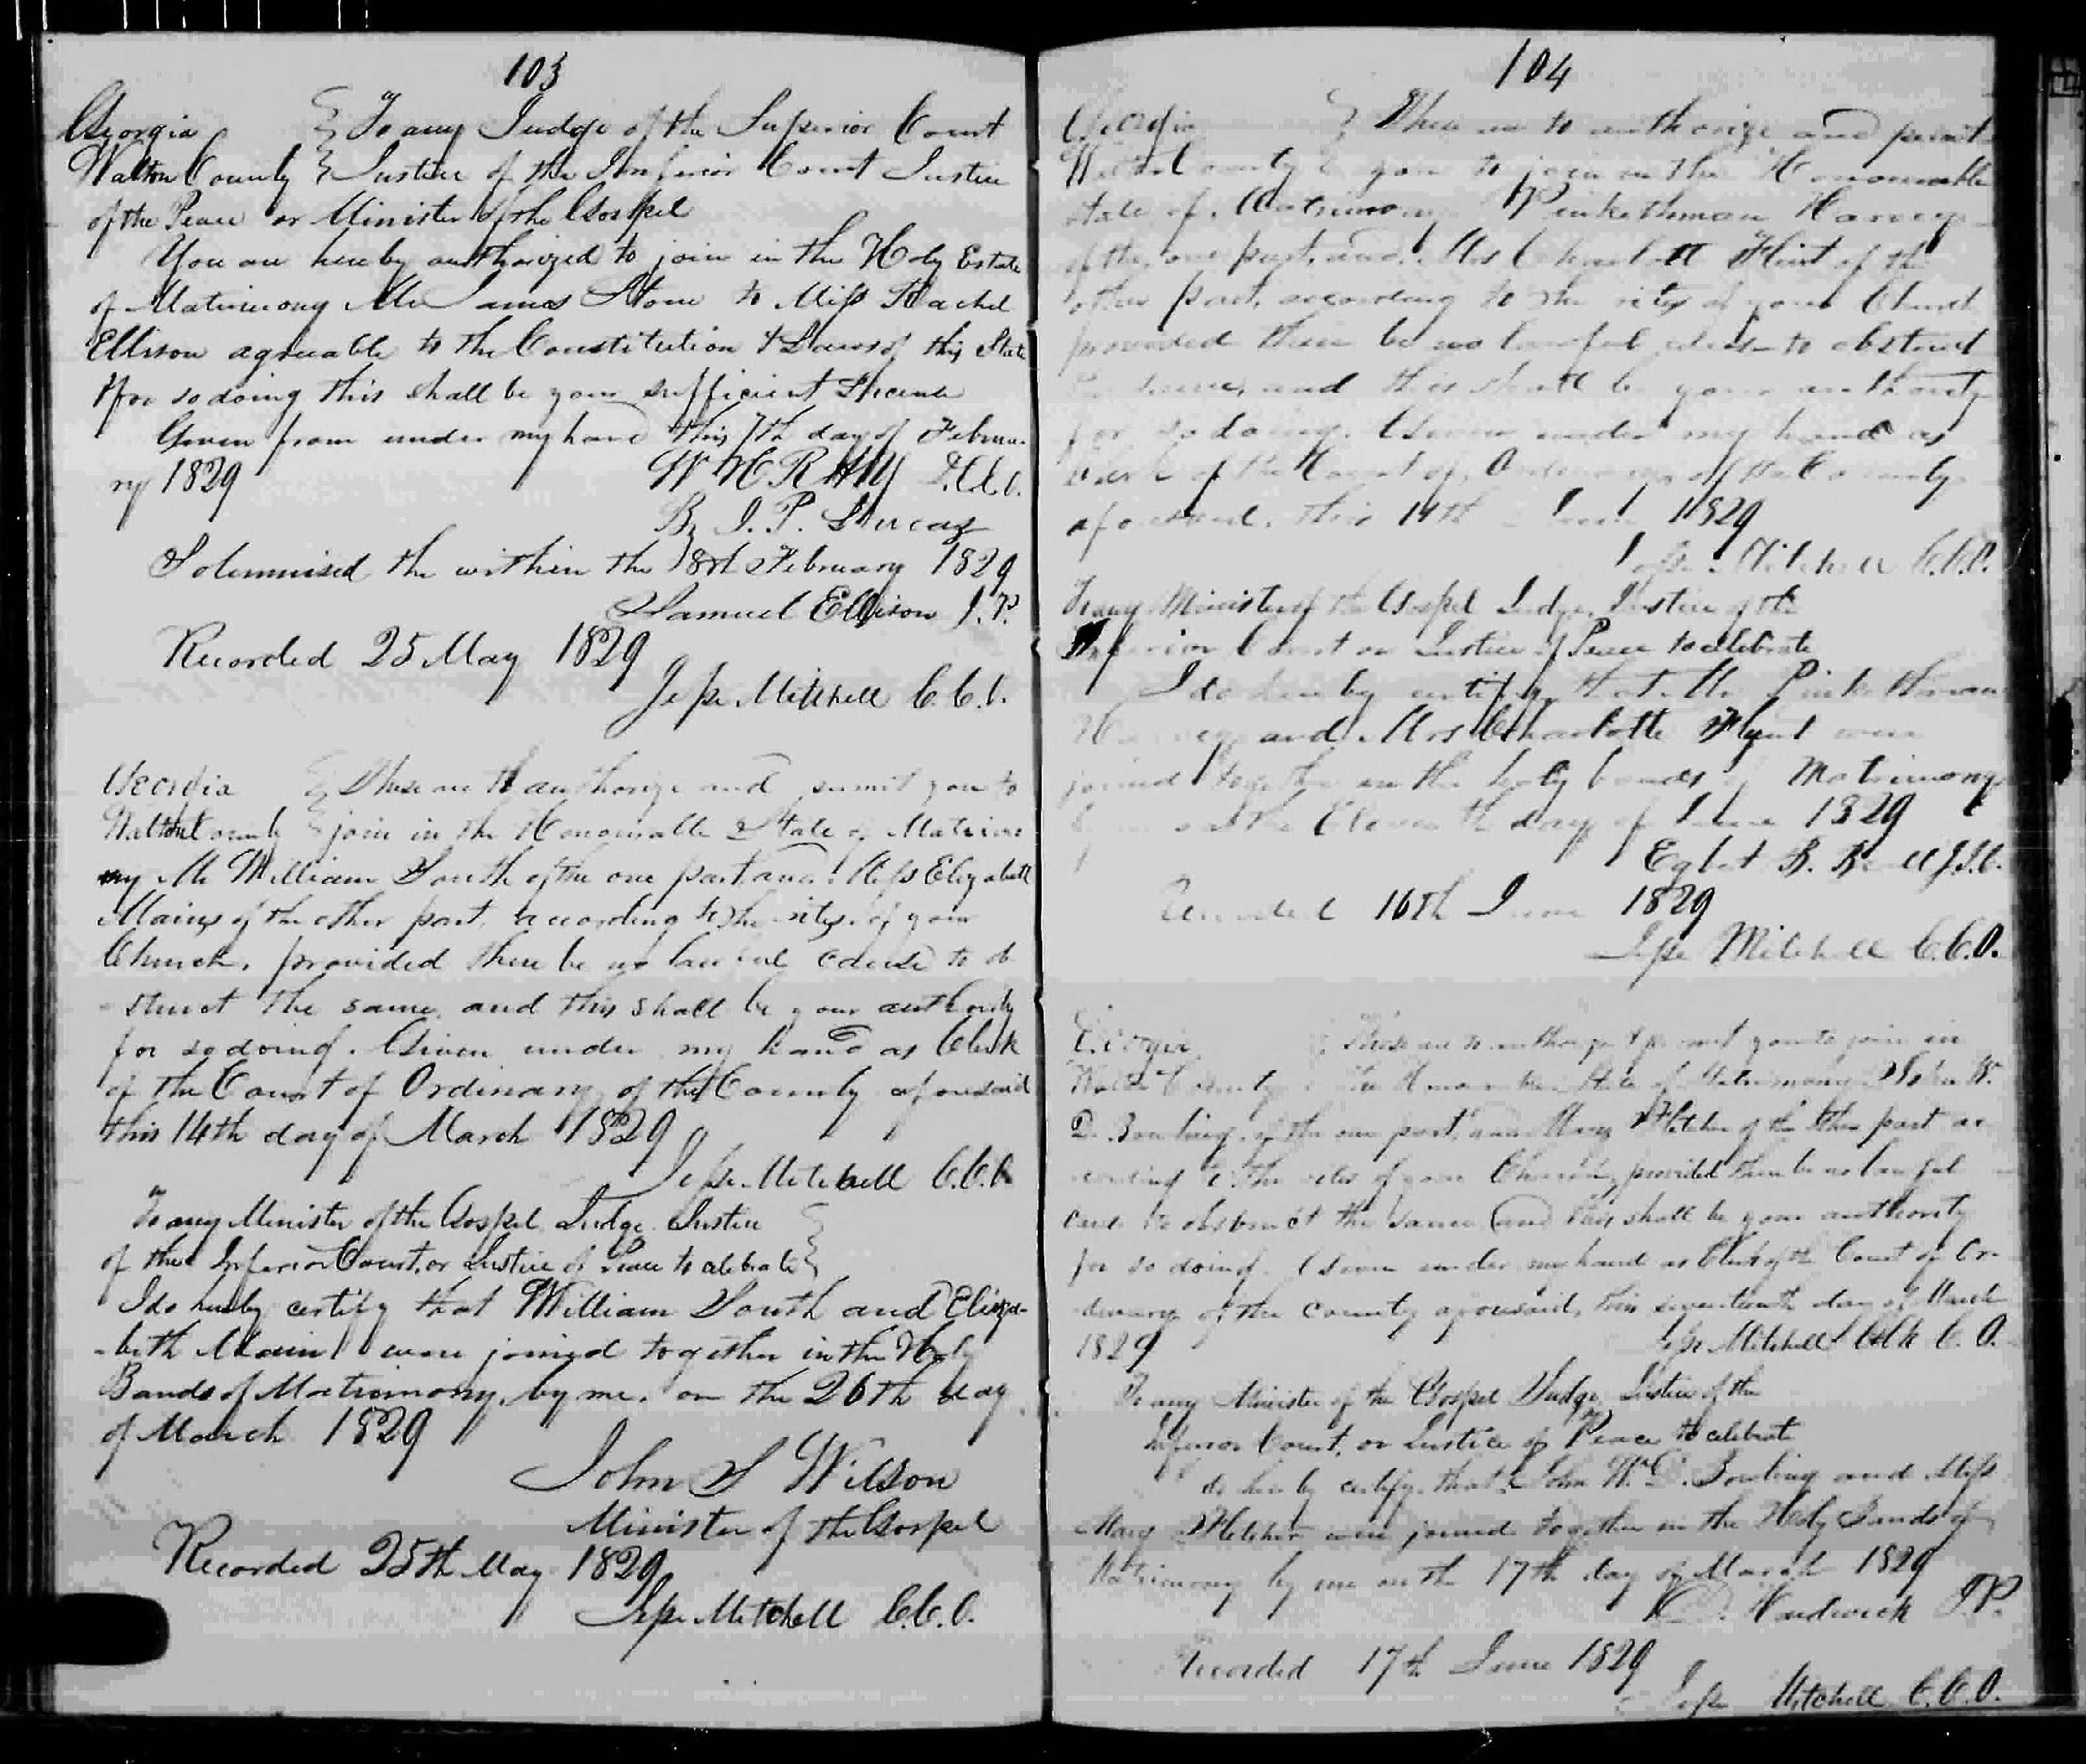 103
Georgia } To any Judge of the Superior Court
Walton County } Justice of the Inferior Court Justice
of the Peace or Minister of the Gospel
You are hereby authorized to join in the Holy Estate
of Matrimony Mr James Stone to Miss Rachel
Ellison agreeable to the Constitution & Laws of this State
& for so doing this shall be your sufficient License
Given from under my hand this 7th day of Februa-
ry 1829 W H R
By J. P. Lucas
Solemnised the within the 8th February 1829
Samuel Ellison J. P.
Recorded 25 May 1829
Jesse Mitchell C. C. O.
Georgia } These are to authorize and permit you to
Walton County } join in the Honourable State of Matrimo
ny Mr William South of the one part, and Miss Elizabeth
Mains of the other part, according to the rites of your
Church, provided there be no lawful cause to ob
-struct the same, and this shall be your authority
for so doing. Given under my hand as Clerk
of the Court of Ordinary of the County aforesaid
this 14th day of March 1829
Jesse Mitchell C. C. O.
To any Minister of the Gospel Judge Justice
of the Inferior Court, or Justice of Peace to celebrate }
I do hereby certify that William South and Eliza-
-beth Main were joined together in the Holy
Bands of Matrimony, by me, on the 26th day
of March 1829
John S Wilson
Minister of the Gospel
Recorded 25th May 1829
Jesse Mitchell C. C. O.
104
Georgia } These are to authorize and permit
Walton County } you to join in the Honourable
state of Matrimony Pinkethman Harvey
of the one part, and Mrs Charlott Flint of the
other part, according to the rites of your Church
provided there be no lawful cause to obstruct
the same, and this shall be your authority
for so doing. Given under my hand as
Clerk of the Court of Ordinary of the County
aforesaid. this 11th June 1829
Jesse Mitchell C. C. O.
To any Minister of the Gospel Judge, Justice of the
Inferior Court or Justice of Peace to celebrate
I do hereby certify that Mr Pinkethman
Harvey and Mrs Charlotte Flynt were
joined together in the holy bands of Matrimony
on the Eleventh day of June 1829
Egbert B. Beall J. I. C.
Recorded 16th June 1829
Jesse Mitchell C. C. O.
Georgia } These are to authorize & permit you to join in
Walton County } the Honourable State of Matrimony John W.
D. Bowling of the one part, and Mary Fletcher of the other part ac
cording to the rites of your Church, provided there be no lawful
cause to obstruct the same, and this shall be your authority
for so doing. Given under my hand as Clerk of the Court of Or-
dinary of the County aforesaid, this seventeenth day of March
1829 Jesse Mitchell Clk C. O.
To any Minister of the Gospel Judge, Justice of the
Inferior Court, or Justice of Peace to celebrate
I do hereby certify that John W. D. Bowling and Miss
Mary Fletcher were joined together in the Holy Bands of
Matrimony by me on the 17th day of March 1829
Hardwick J. P.
Recorded 17th June 1829
Jesse Mitchell C. C. O.